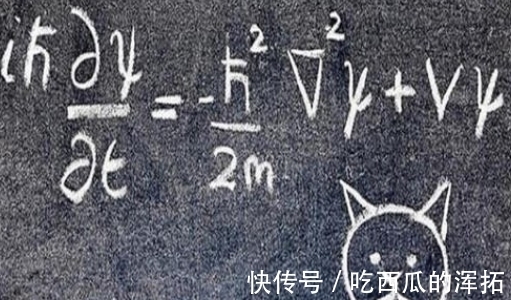 iħ ∂ψ/∂t = -ħ²/2m ∇²ψ + Vψ
快传号 / 吃西瓜的浑拓